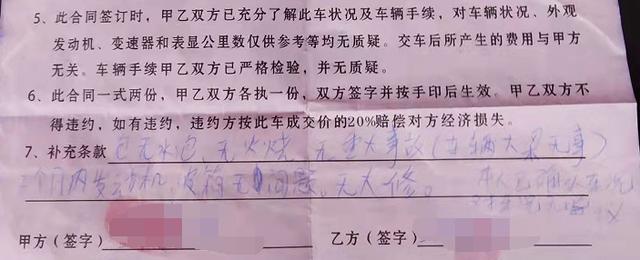 5、此合同签订时，甲乙双方已充分了解此车状况及车辆手续，对车辆状况、外观
发动机、变速器和表显公里数仅供参考等均无质疑。交车后所产生的费用与甲方
无关。车辆手续甲乙双方已严格检验，并无质疑。
6、此合同一式两份，甲乙双方各执一份，双方签字并按手印后生效。甲乙双方不
得违约，如有违约，违约方按此车成交价的20%赔偿对方经济损失。
7、补充条款 无水泡、无火烧、无重大事故（车辆大梁无事）
三个月内发动机，波箱无问题。无大修。
本人已确认车况
对车况无异议
甲方（签字）
乙方（签字）